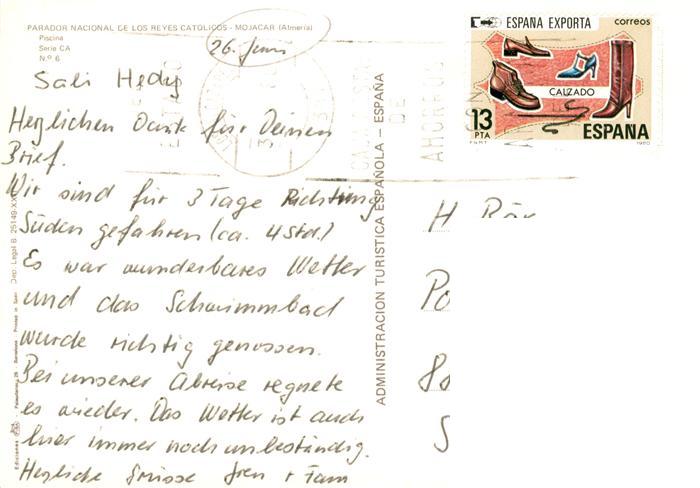 PARADOR NACIONAL DE LOS REYES CATOLICOS - MOJACAR (Almería)
Piscina
Serie CA
N.º 6
26. Juni
Sali Hedy
Herzlichen Dank für Deinen
Brief.
Wir sind für 3 Tage Richtung
Süden gefahren (ca. 4 Std.)
Es war wunderbares Wetter
und das Schwimmbad
wurde richtig genossen.
Bei unserer Abreise regnete
es wieder. Das Wetter ist auch
hier immer noch unbeständig.
Herzliche Grüsse + Fam
ADMINISTRACION TURISTICA ESPAÑOLA - ESPAÑA
Dep. Legal B. 25149-XX
ESPAÑA EXPORTA
correos
CALZADO
13
PTA
ESPAÑA
1980
F.N.M.T.
AHORRO
DE
H
Po
S